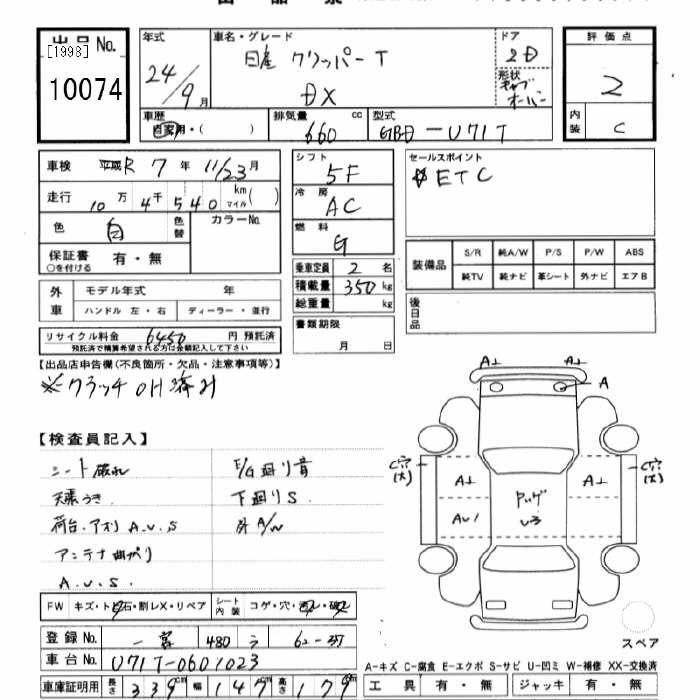 出品No.
[1998]
10074
年式
24/9月
車名・グレード
日産 クリッパーT
DX
ドア
2D
形状
キャブオーバー
評価点
2
内装
C
車歴
自家用・( )
排気量
660 cc
型式
GBD-U71T
車検 平成R 7年 11/23月
走行 10万 4千 540 km マイル ( )
色 白 色替 カラーNo.
保証書 有・無
○を付ける
シフト
5F
冷房
AC
燃料
G
乗車定員 2 名
積載量 350 kg
総重量 kg
書類期限
月 日
セールスポイント
ETC
装備品
S/R 純A/W P/S P/W ABS
純TV 純ナビ 革シート 外ナビ エアB
後日品
外車
モデル年式 年
ハンドル 左・右 ディーラー・並行
リサイクル料金 6450 円 預託済
預託済で精算希望される方は金額記入して下さい
【出品店申告欄(不良箇所・欠品・注意事項等)】
※クラッチOH済み
【検査員記入】
シート破れ
天張うき
荷台.アオリ A.U.S
アンテナ曲がり
A.U.S.
E/G廻り音
下廻りS.
外A/W
FW キズ・ト石・割レX・リペア シート内装 コゲ・穴・
登録No. 一宮 480 う 62-37
車台No. U71T-0601023
車庫証明用 長さ 339cm 幅 147cm 高さ 179cm
A1 A1
A
C穴(大) A1 A1 C穴(大)
AU1
U3
スペア
A-キズ C-腐食 E-エクボ S-サビ U-凹ミ W-補修 XX-交換済
工具 有・無 ジャッキ 有・無